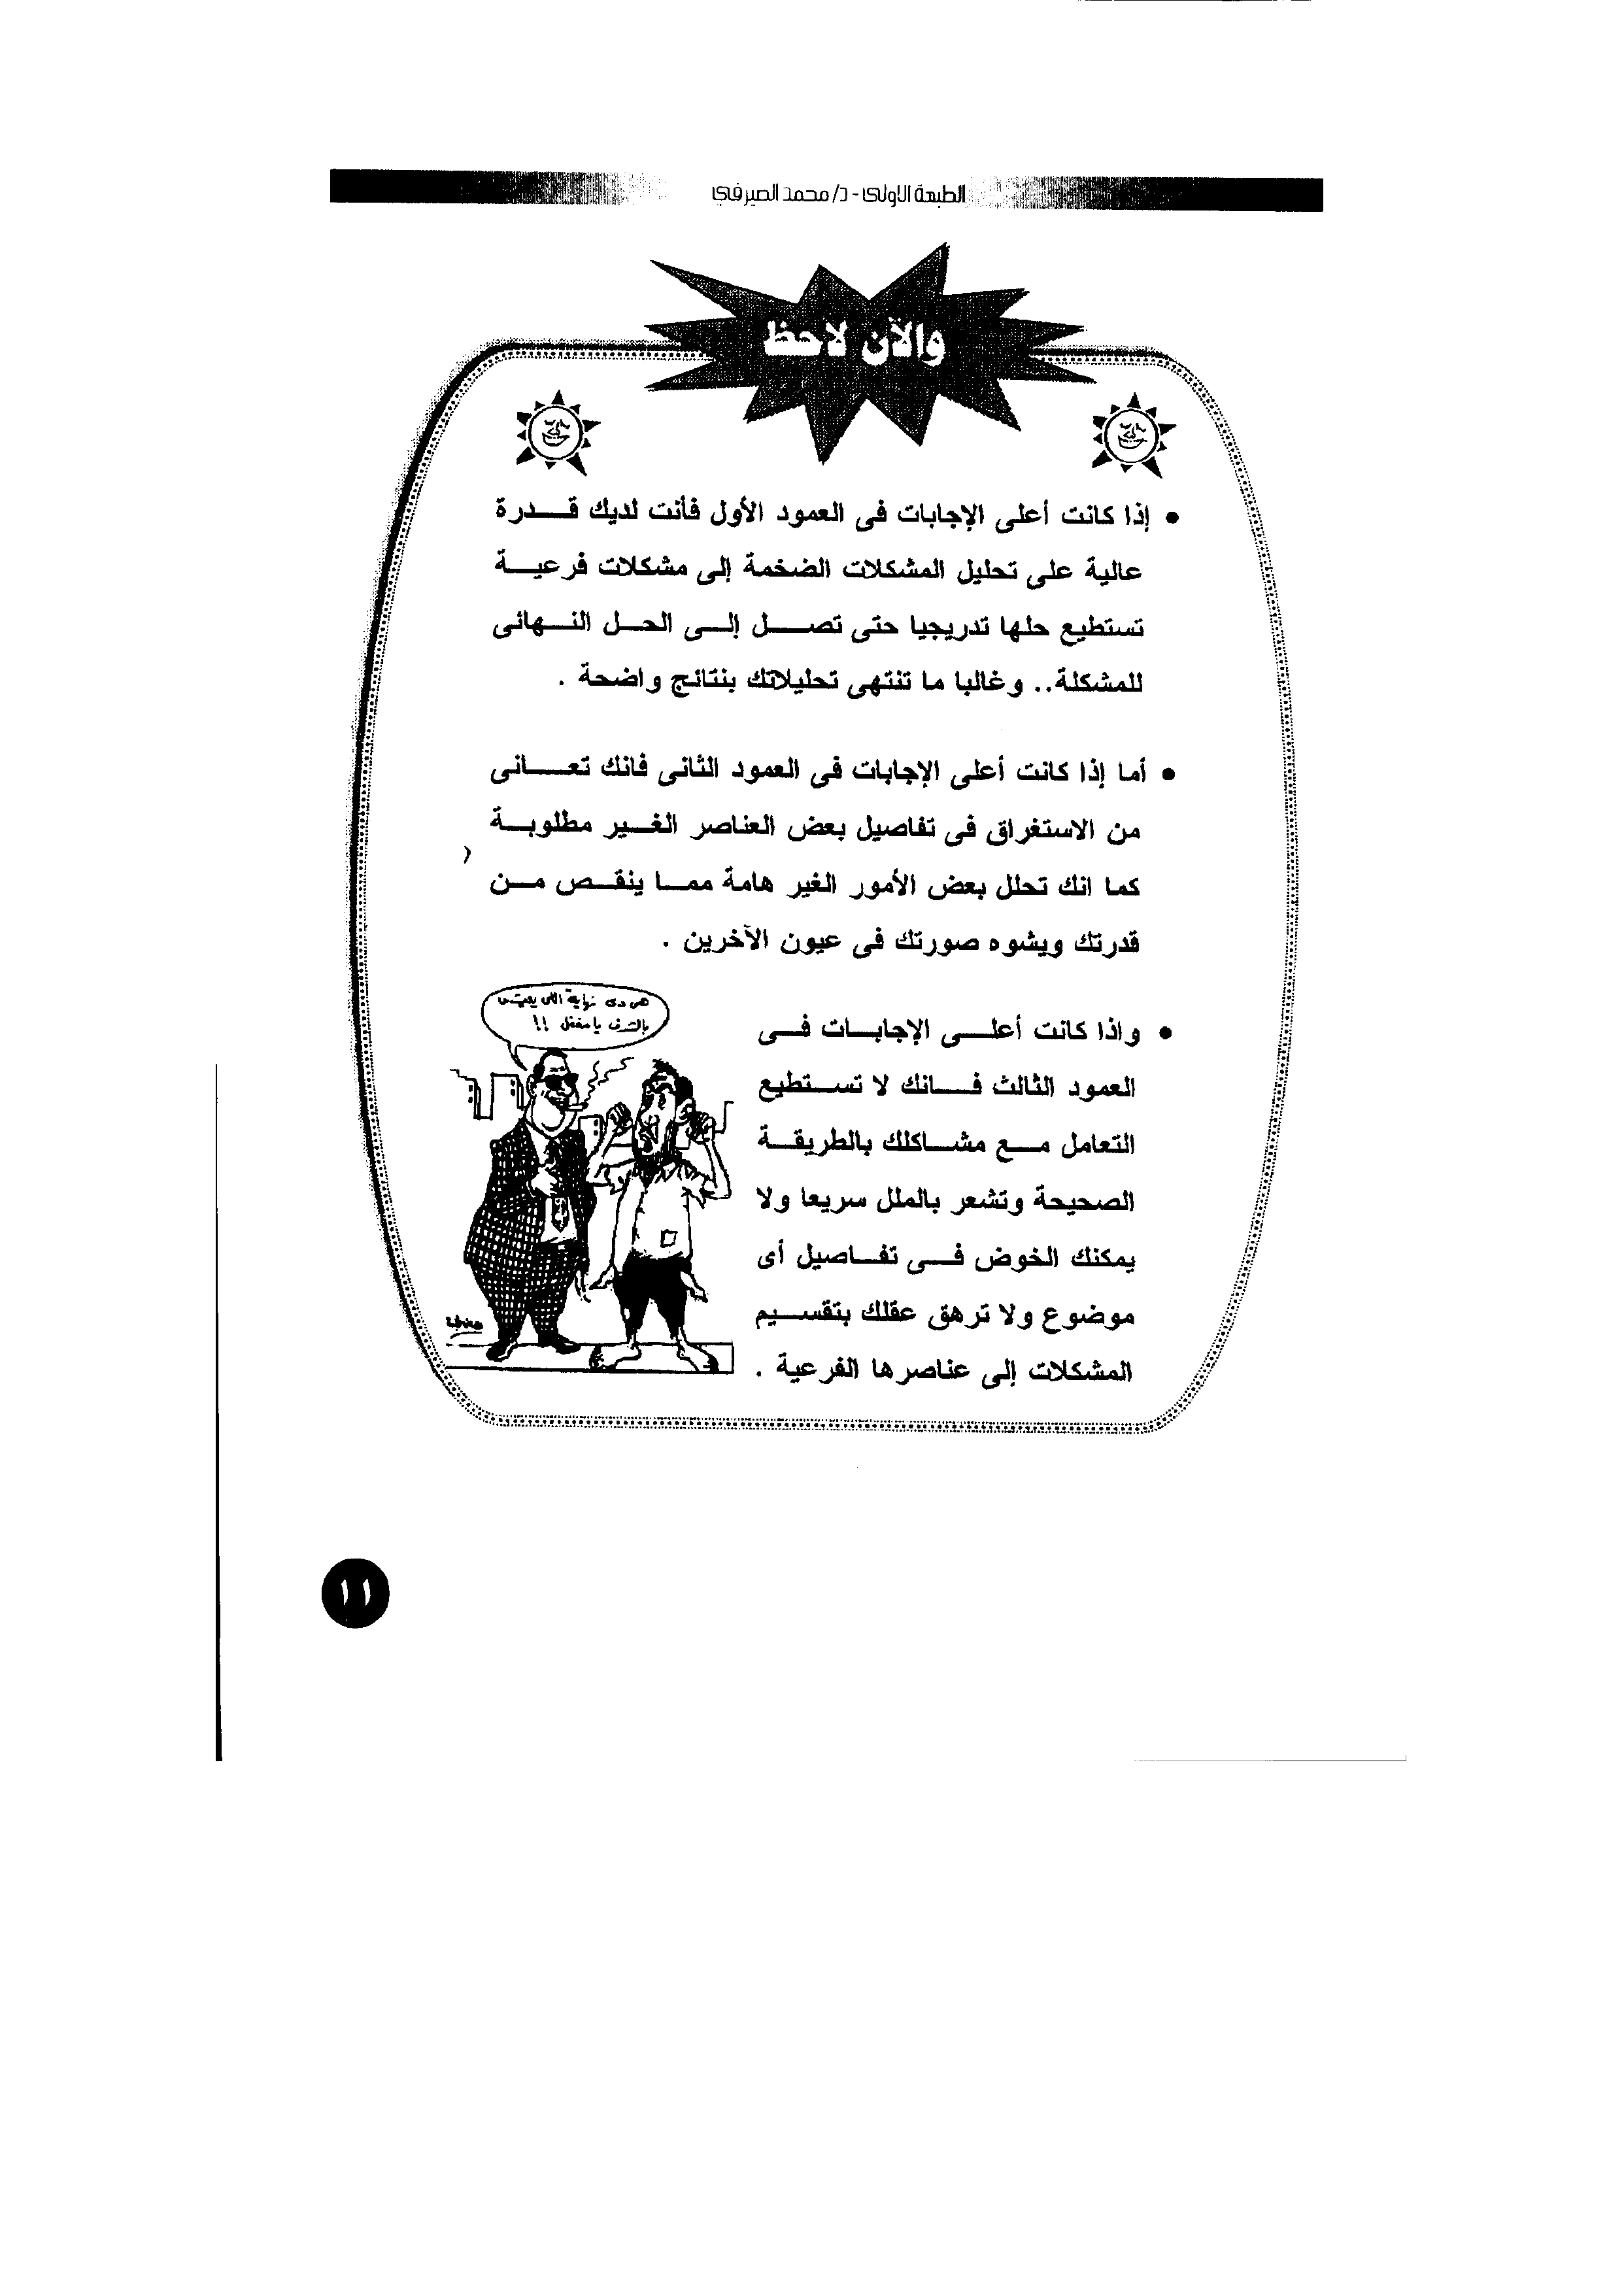 الطبعة الاولى - د/ محمد الصيرفي
والآن لاحظ
• إذا كانت أعلى الإجابات فى العمود الأول فأنت لديك قدرة
عالية على تحليل المشكلات الضخمة إلى مشكلات فرعية
تستطيع حلها تدريجيا حتى تصل إلى الحل النهائى
للمشكلة.. وغالبا ما تنتهى تحليلاتك بنتائج واضحة .
• أما إذا كانت أعلى الإجابات فى العمود الثانى فانك تعانى
من الاستغراق فى تفاصيل بعض العناصر الغير مطلوبة
كما انك تحلل بعض الأمور الغير هامة مما ينقص من
قدرتك ويشوه صورتك فى عيون الآخرين .
• واذا كانت أعلى الإجابات فى
العمود الثالث فانك لا تستطيع
التعامل مع مشاكلك بالطريقة
الصحيحة وتشعر بالملل سريعا ولا
يمكنك الخوض فى تفاصيل أى
موضوع ولا ترهق عقلك بتقسيم
المشكلات إلى عناصرها الفرعية .
هى دى نهاية اللى يعيش
بالشرف يا مغفل !!
١١